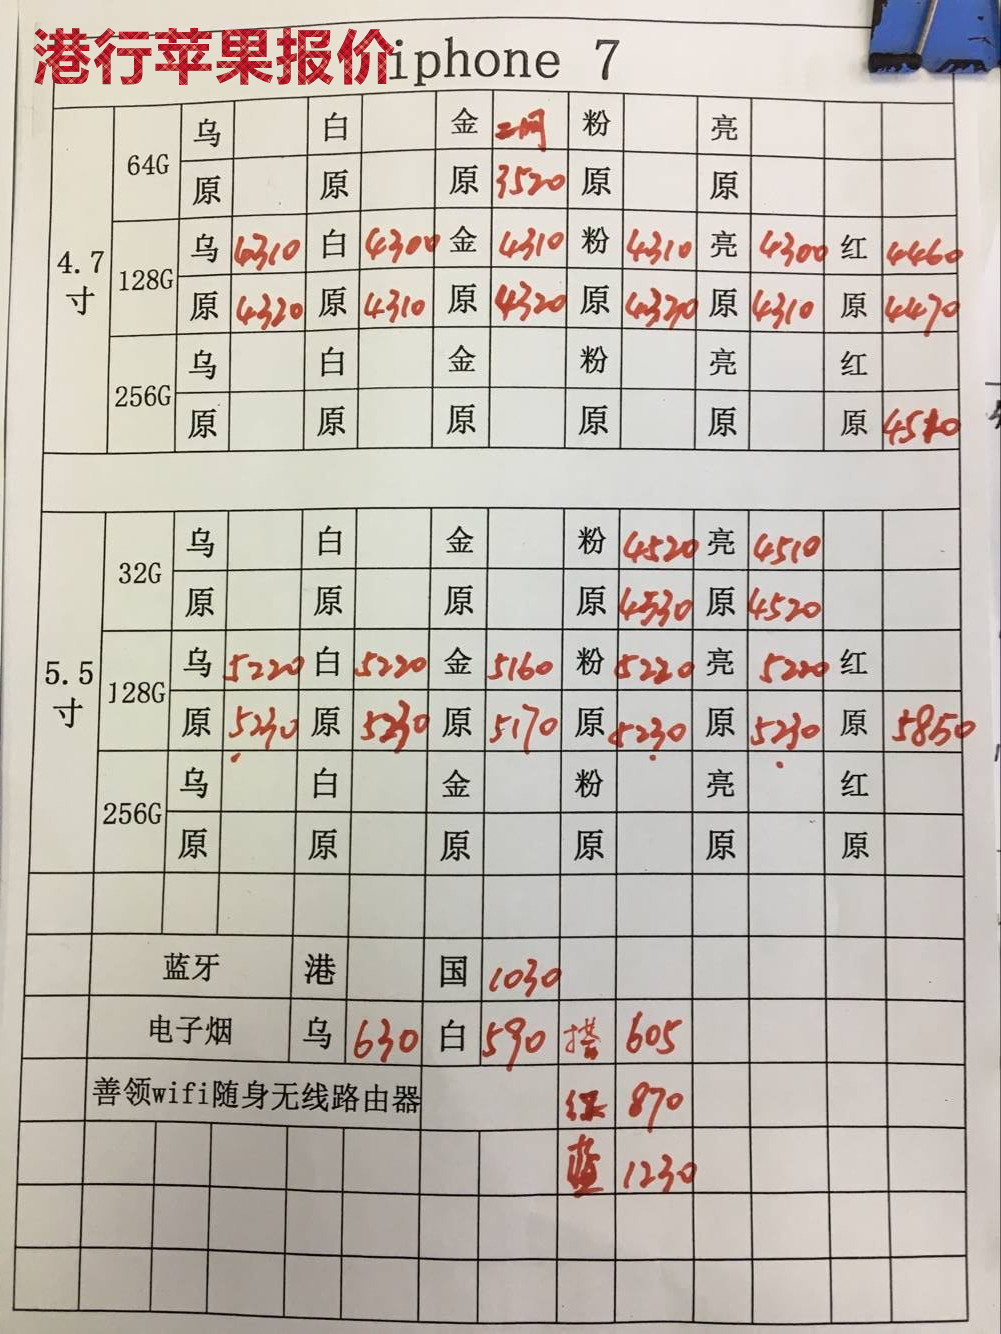 港行苹果报价
iphone 7
4.7寸
64G
乌 白 金 二网 粉 亮
原 原 原 3520 原 原
128G
乌 4310 白 4300 金 4310 粉 4310 亮 4300 红 4460
原 4320 原 4310 原 4320 原 4320 原 4310 原 4470
256G
乌 白 金 粉 亮 红
原 原 原 原 原 原
5.5寸
32G
乌 白 金 粉 4520 亮 4510
原 原 原 原 4530 原 4520
128G
乌 5220 白 5220 金 5160 粉 5220 亮 5220 红
原 5230 原 5230 原 5170 原 5230 原 5230 原 5850
256G
乌 白 金 粉 亮 红
原 原 原 原 原 原
蓝牙 港 国 1030
电子烟 乌 630 白 590 搭 605
善领wifi随身无线路由器 红 870
蓝 1230